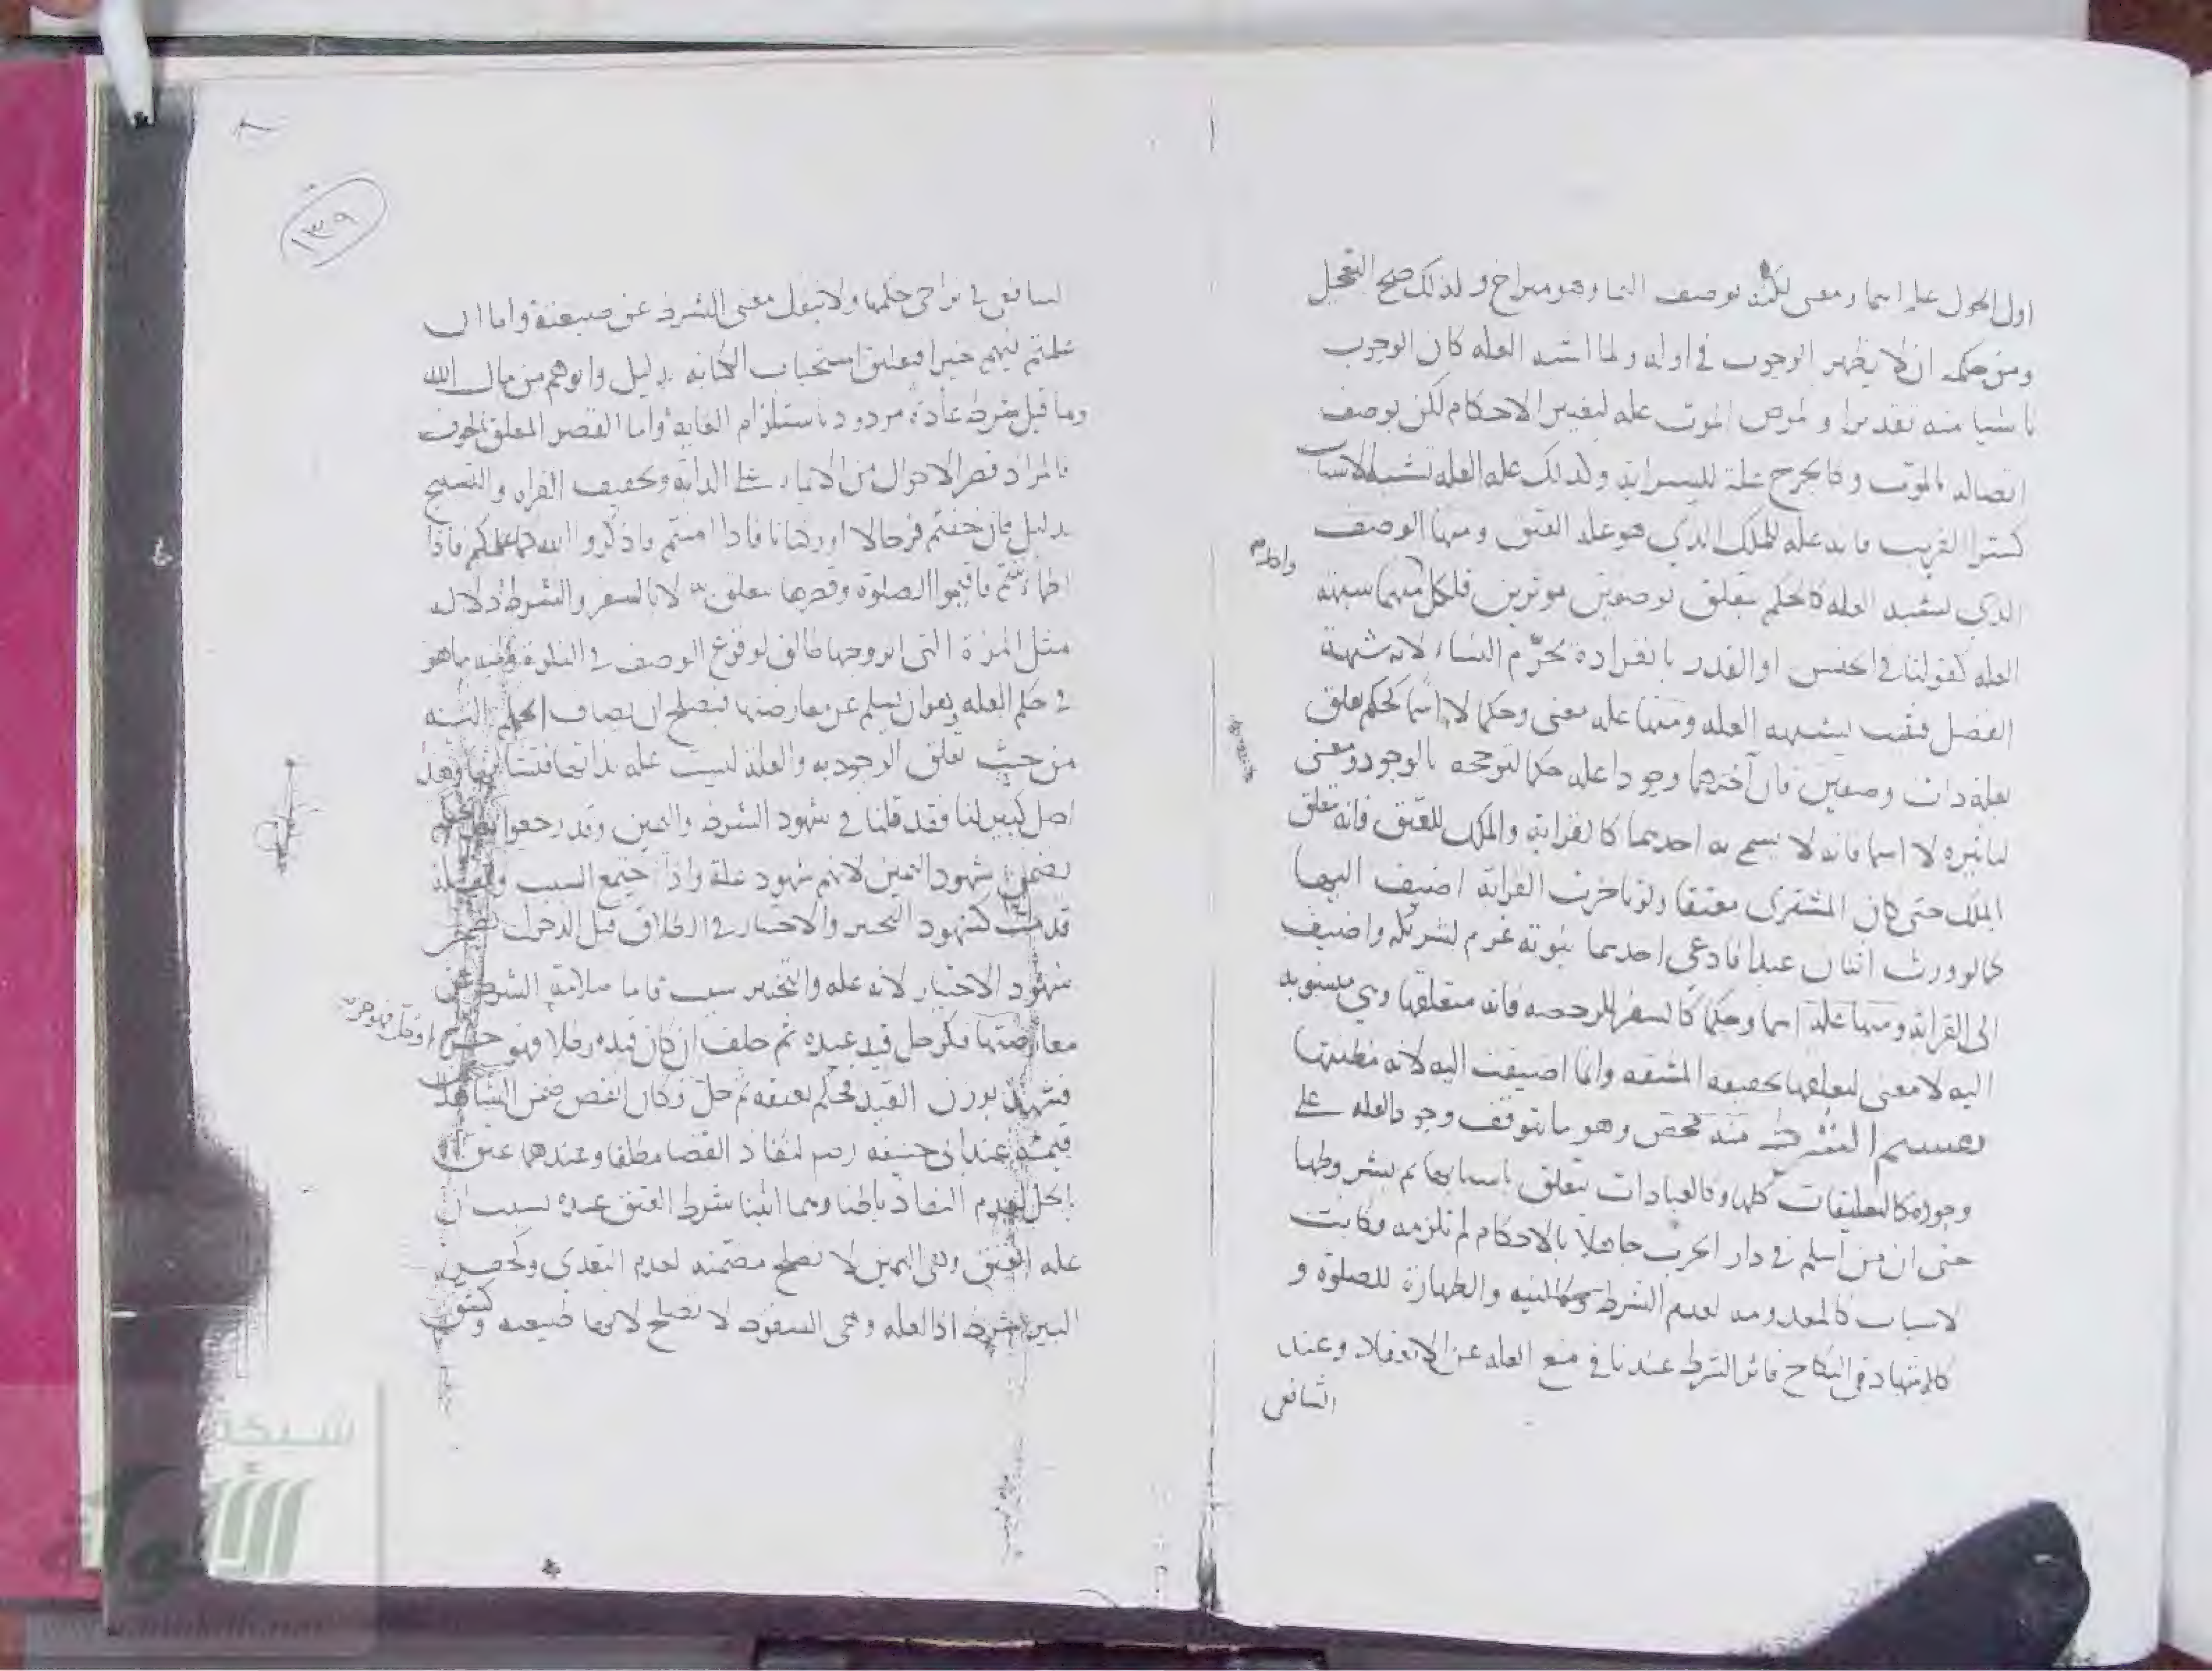 اول الحول علة اسما ومعنى لكنه بوصف النما وهو متراخ ولذلك صح التعجيل
ومن حكمه ان لا يظهر الوجوب في اوله ولما اشبه العلة كان الوجوب
ثابتا منه تقديرا ومرض الموت علة لتغيير الاحكام لكن بوصف
اتصاله بالموت وكالجرح علة للسراية وكذلك علة العلة تشبه الاسباب
كشرا القريب فانه علة للملك الذي هو علة العتق ومنها الوصف
الذي يشبه العلة كالحكم يتعلق بوصفين موثرين فلكل منهما شبهة
العلة كقولنا في الجنس او القدر بانفراده يحرم النساء لانه شبهة
الفضل فثبت بشبهة العلة ومنها علة معنى وحكما لا اسما كحكم تعلق
بعلة ذات وصفين فان آخرهما وجودا علة حكما لترجحه بالوجود ومعنى
لتاثيره لا اسما فانه لا يسمى به احديهما كالقرابة والملك للعتق فانه تعلق
الملك حتى كان المشتري معتقا ولو تاخرت القرابة اضيف اليها
كما لو ورث اثنان عبدا فادعى احديهما بنوته غرم لشريكه واضيف
الى القرابة ومنها علة اسما وحكما كالسفر للرخصة فانه متعلقها وهي منسوبة
اليه لا معنى لتعلقها بحقيقة المشقة وانما اضيفت اليه لانه مظنتها
تقسيم الشرط منه محض وهو ما يتوقف وجود العلة على
وجوده كالتعليقات كلها وكالعبادات يتعلق باسبابها ثم بشروطها
حتى ان من اسلم في دار الحرب جاهلا بالاحكام لم تلزمه وكانت
لاسباب كالمعدومة لعدم الشرط وكالنية والطهارة للصلوة و
كالاشهاد في النكاح فاثر الشرط عندنا في منع العلة عن الانعقاد وعند
الشافعي
١٣٩
الشافعي في تراخي حكمها ولا يتحول معنى الشرط عن صيغته واما ان
علمتم فيهم خيرا فتعليق استحباب الكتابة بدليل واتوهم من مال الله
وما قيل شرط عادة مردود باستلزام الغاية واما القصر المعلق بالخوف
فالمراد قصر الاحوال من الايماء على الدابة وتخفيف القراة والتسبيح
بدليل فان خفتم فرجالا او ركبانا فاذا امنتم فاذكروا الله كما علمكم فاذا
اطماننتم فاقيموا الصلوة وقصرها يتعلق به لا بالسفر والشرط دلالة
مثل المراة التي اتزوجها طالق لوقوع الوصف في النكرة ومنه ما هو
في حكم العلة وهو ان يسلم عن معارضتها فيصلح ان يضاف الحكم اليه
من حيث تعلق الوجود به والعلة ليست علة بذاتها وهذا
اصل كبير لنا فقد قلنا في شهود الشرط واليمين وقد رجعوا بعد الحكم
يضمن شهود اليمين لانهم شهود علة واذا اجتمع السبب والعلة
قدمت كشهود التخيير والاختيار في الطلاق قبل الدخول
شهود الاختيار لانه علة والتخيير سبب فاما سلامة الشرط عن
معارضتها فكرجل قيد عبده ثم حلف ان كان قيده رطلا فهو حر
فشهد بوزن القيد فحكم بعتقه ثم حل وكان انقص ضمن الشاهد
قيمته عند ابي حنيفة رحمه لنفاذ القضا مطلقا وعندهما عتق
بالحل لعدم النفاذ باطنا وهما اثبتا شرط العتق عنده بسبب ان
علة العتق وهي اليمين لا تصلح مضمنه لعدم التعدي وكحفر
البير شرط اذ العلة وهي السقوط لا تصلح لانها طبيعية وكشق